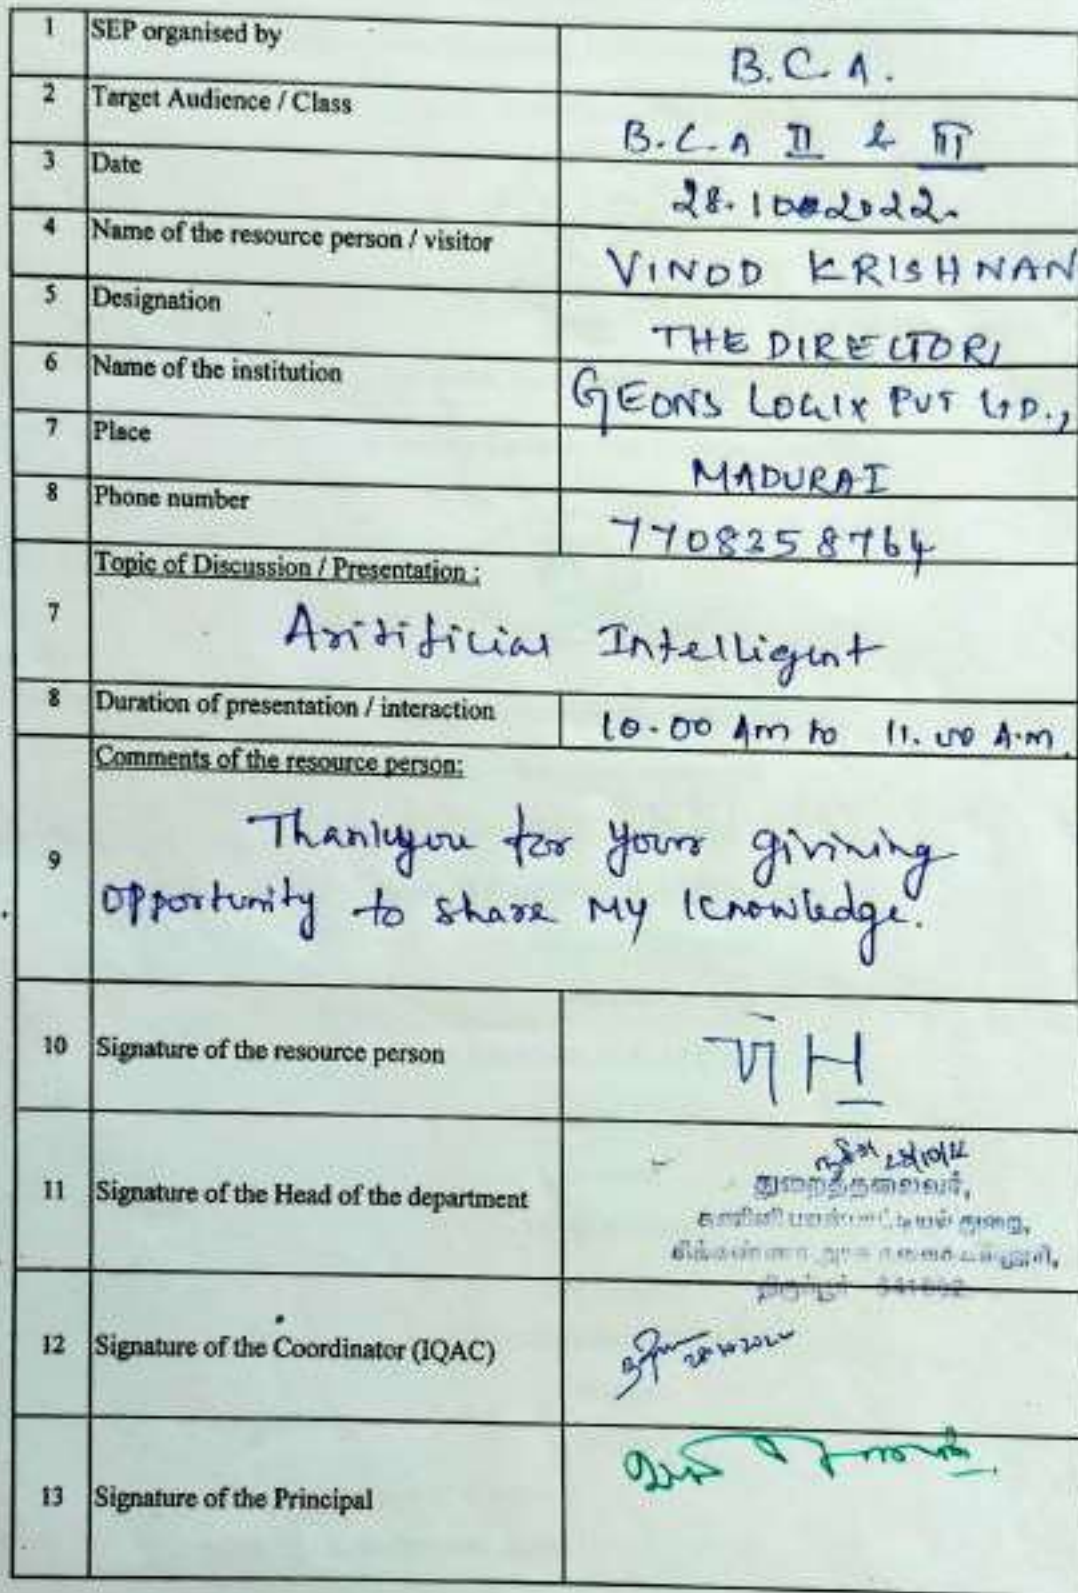 1 SEP organised by B.C.A.
2 Target Audience / Class B.C.A II & III
3 Date 28.10.2022.
4 Name of the resource person / visitor VINOD KRISHNAN
5 Designation THE DIRECTOR,
6 Name of the institution GEONS LOGIX PVT LTD.,
7 Place MADURAI
8 Phone number 7708258764
Topic of Discussion / Presentation :
7 Aritificial Intelligent
8 Duration of presentation / interaction 10.00 Am to 11.00 A.m.
Comments of the resource person:
Thankyou for your givining
9
opportunity to share my knowledge.
10 Signature of the resource person
துறைத்தலைவர்,
11 Signature of the Head of the department
துறை,
திருப்பூர் 641602
12 Signature of the Coordinator (IQAC)
13 Signature of the Principal